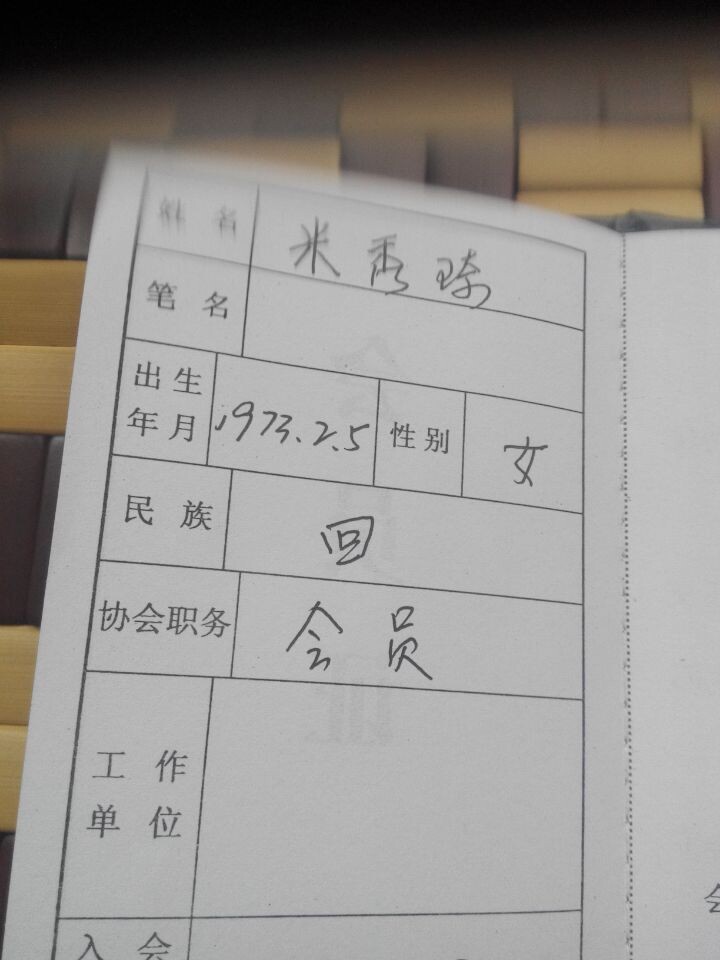 姓名 米秀琦
笔名
出生年月 1973.2.5 性别 女
民族 回
协会职务 会员
工作单位
入会
会